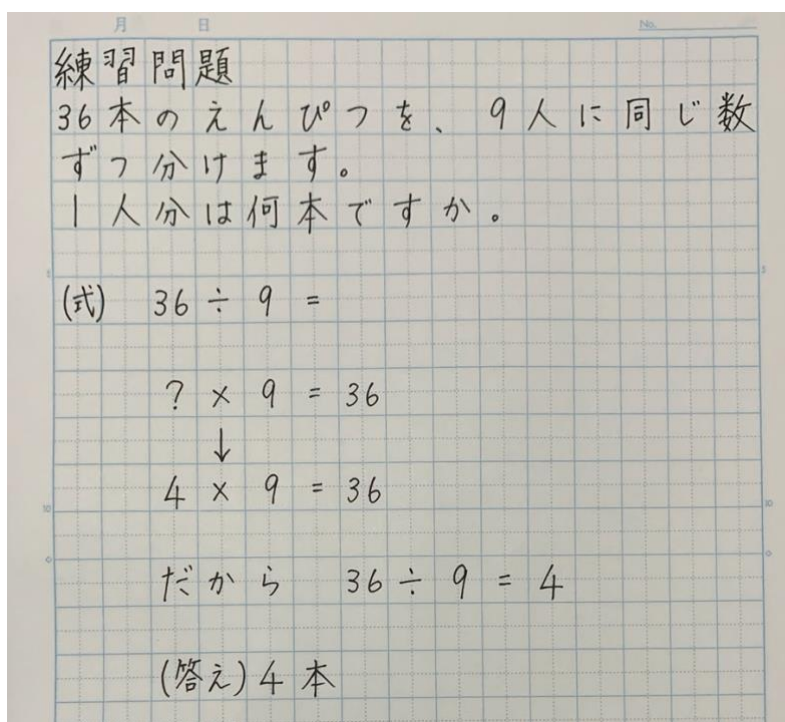 月 日 No.
練習問題
36本のえんぴつを、9人に同じ数
ずつ分けます。
1人分は何本ですか。
5 5
(式) 36÷9=
?×9=36
↓
4×9=36
10 10
だから 36÷9=4
(答え)4本